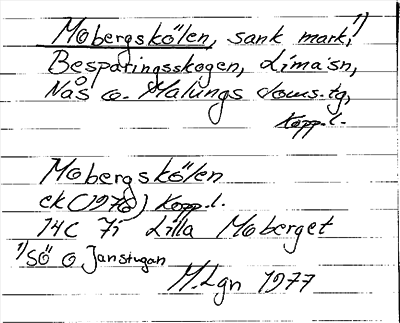 Mobergskölen, sank mark,¹⁾
Besparingsskogen, Lima sn,
Nås o. Malungs doms.tg,
Kopp. l.
Mobergskölen
ek (1970) Kopp. l.
14C 7i Lilla Moberget
¹⁾ SÖ o Janstugan
M. Lgn 1977